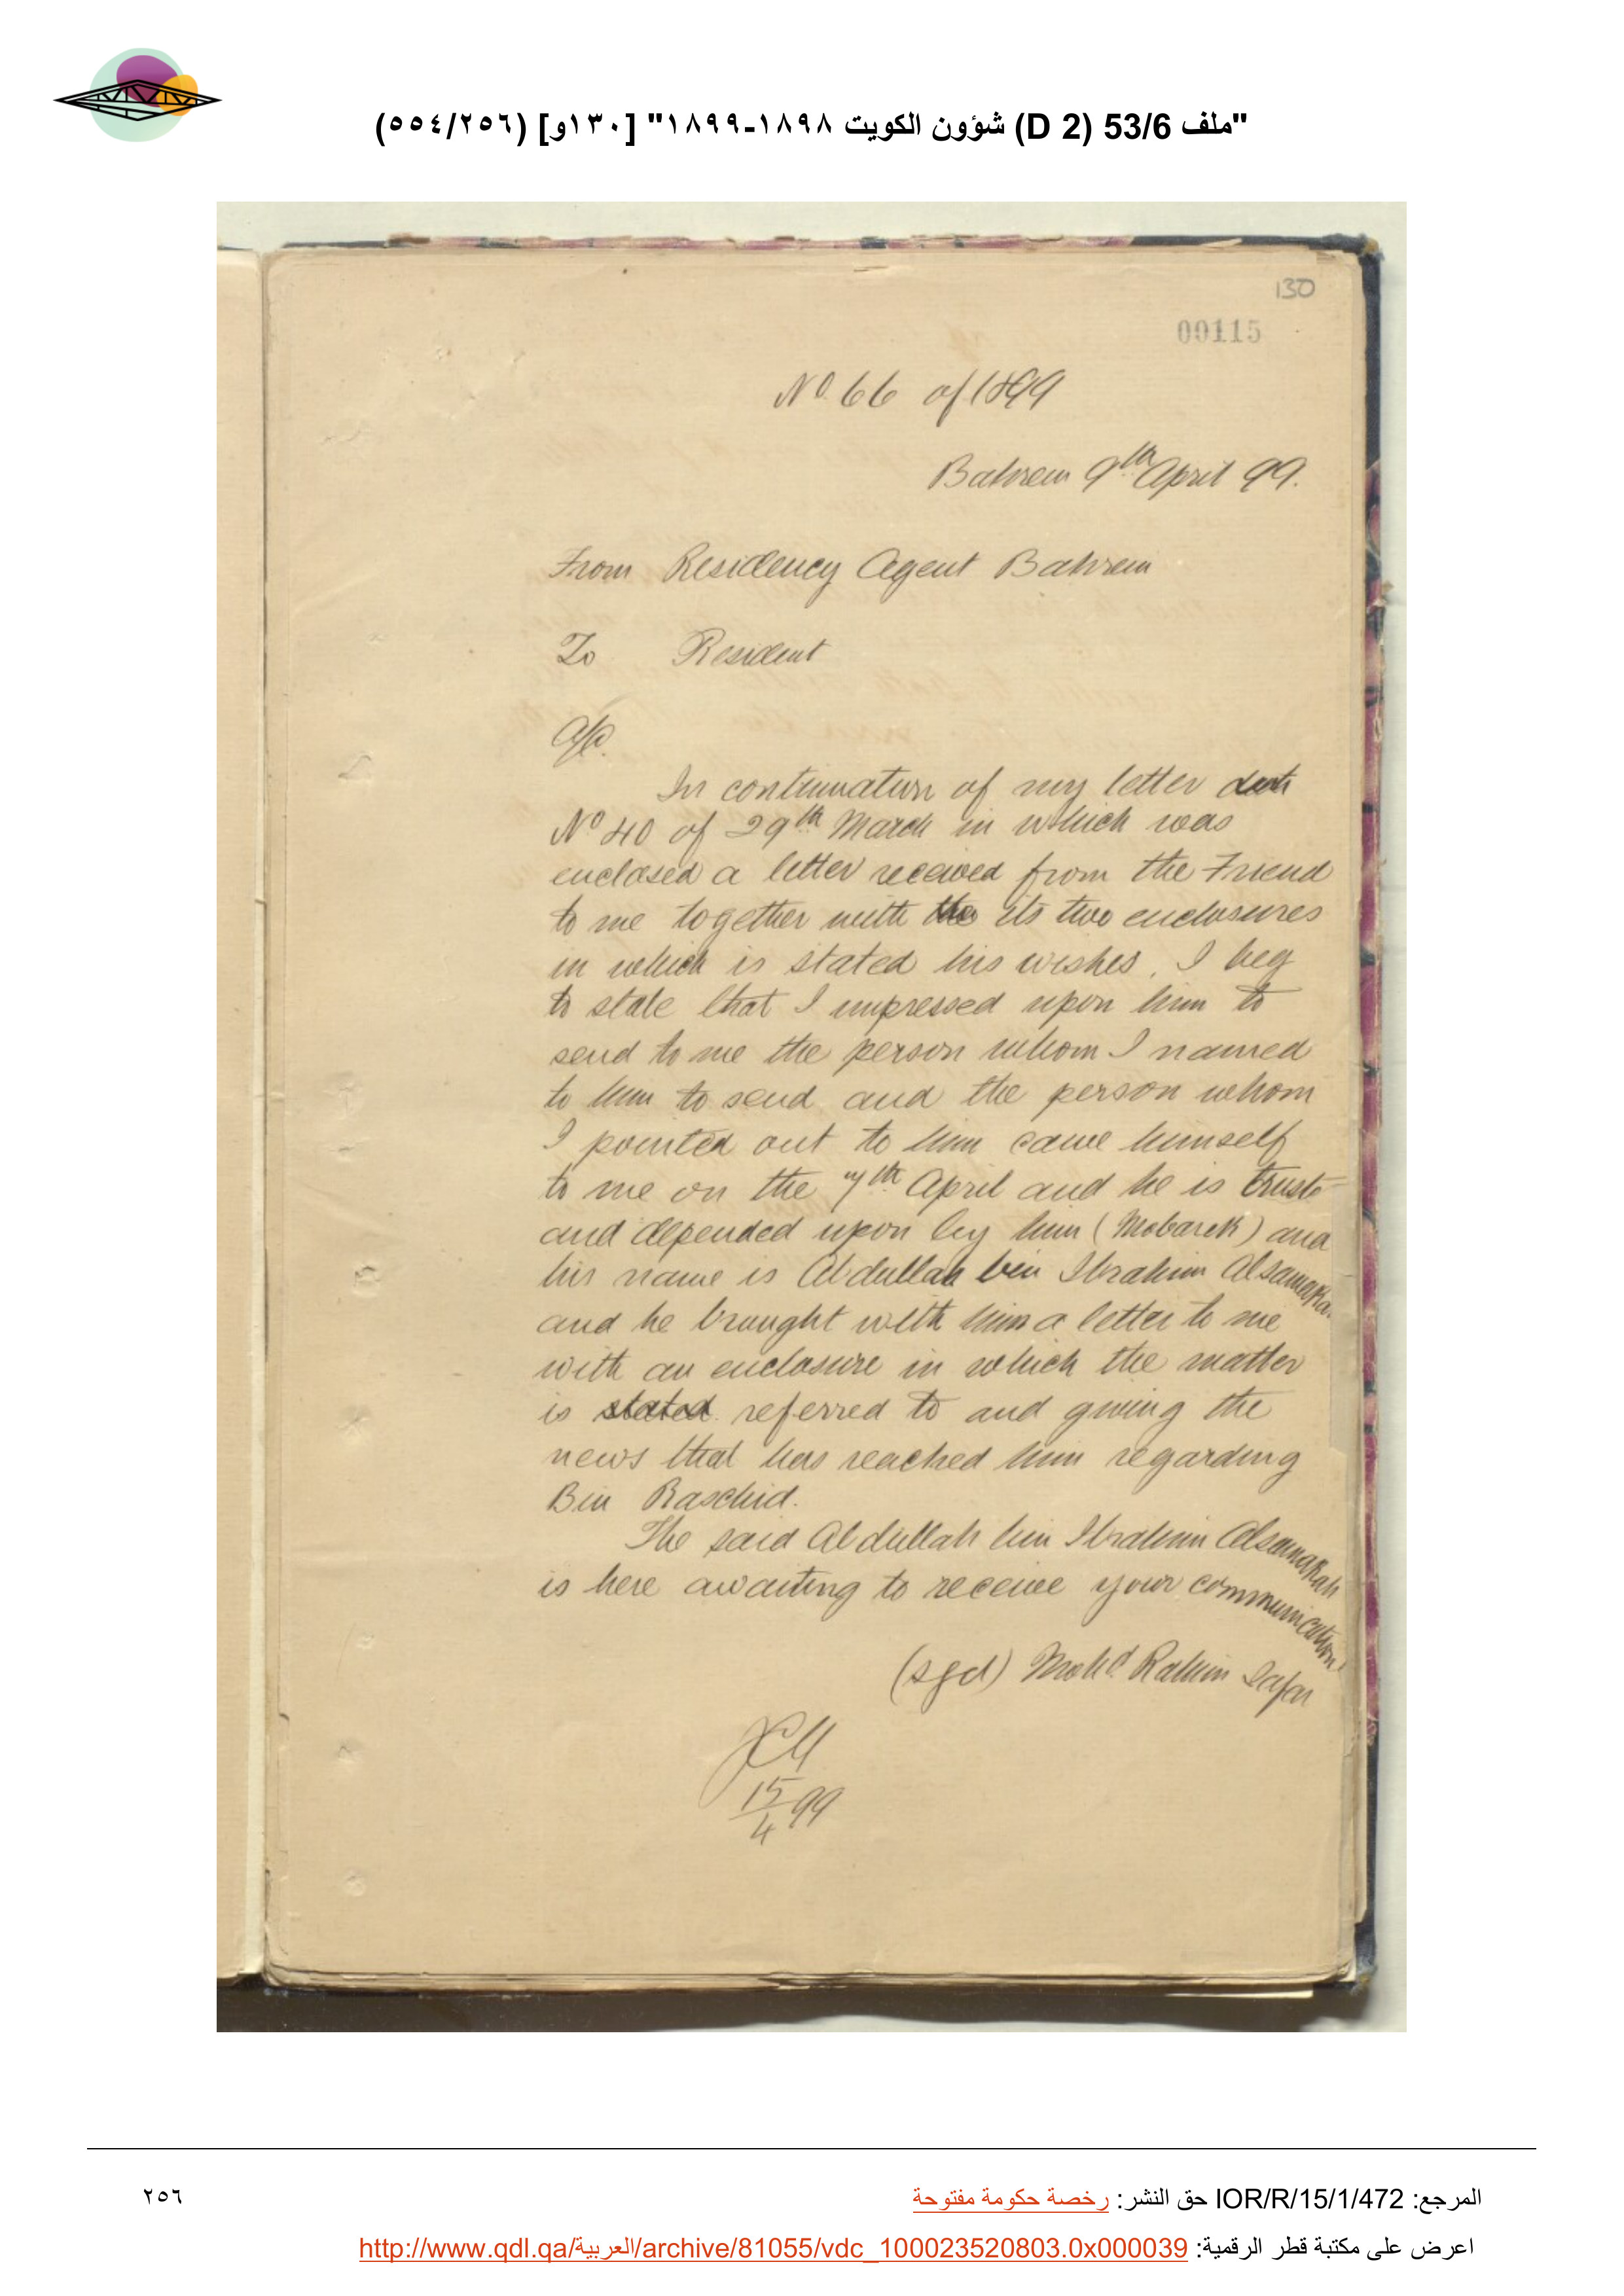 "ملف 53/6 (D 2) شؤون الكويت ١٨٩٨-١٨٩٩" [١٣٠و] (٢٥٦/٥٥٤)
130
00115
No. 66 of 1899
Bahrein 9th April 99.
From Residency Agent Bahrein
To Resident
A/C.
In continuation of my letter
No 40 of 29th March in which was
enclosed a letter received from the Friend
to me together with the its two enclosures
in which is stated his wishes, I beg
to state that I impressed upon him to
send to me the person whom I named
to him to send and the person whom
I pointed out to him came himself
to me on the 7th April and he is trust
and depended upon by him (Mobarek) and
his name is Abdullah bin Ibrahim Alsamaka
and he brought with him a letter to me
with an enclosure in which the matter
is stated referred to and giving the
news that has reached him regarding
Bin Raschid.
The said Abdullah bin Ibrahim Alsamakah
is here awaiting to receive your communication
(sgd) Mohd. Rahim Safar
15/4 99
المرجع: IOR/R/15/1/472 حق النشر: رخصة حكومة مفتوحة
٢٥٦
اعرض على مكتبة قطر الرقمية: http://www.qdl.qa/العربية/archive/81055/vdc_100023520803.0x000039